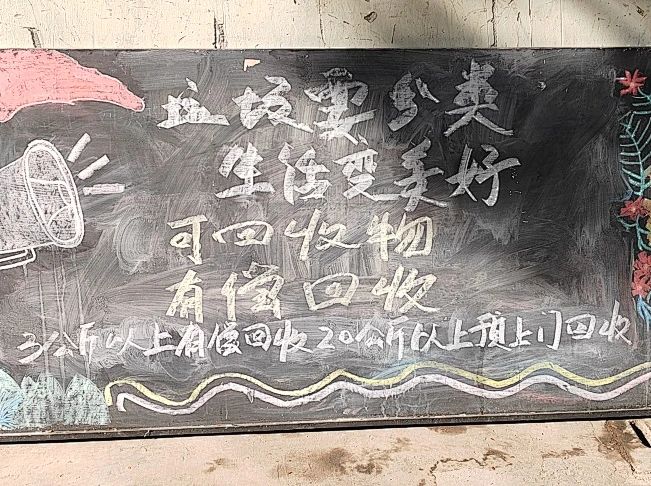 垃圾要分类
生活变美好
可回收物
有偿回收
3公斤以上有偿回收20公斤以上预上门回收